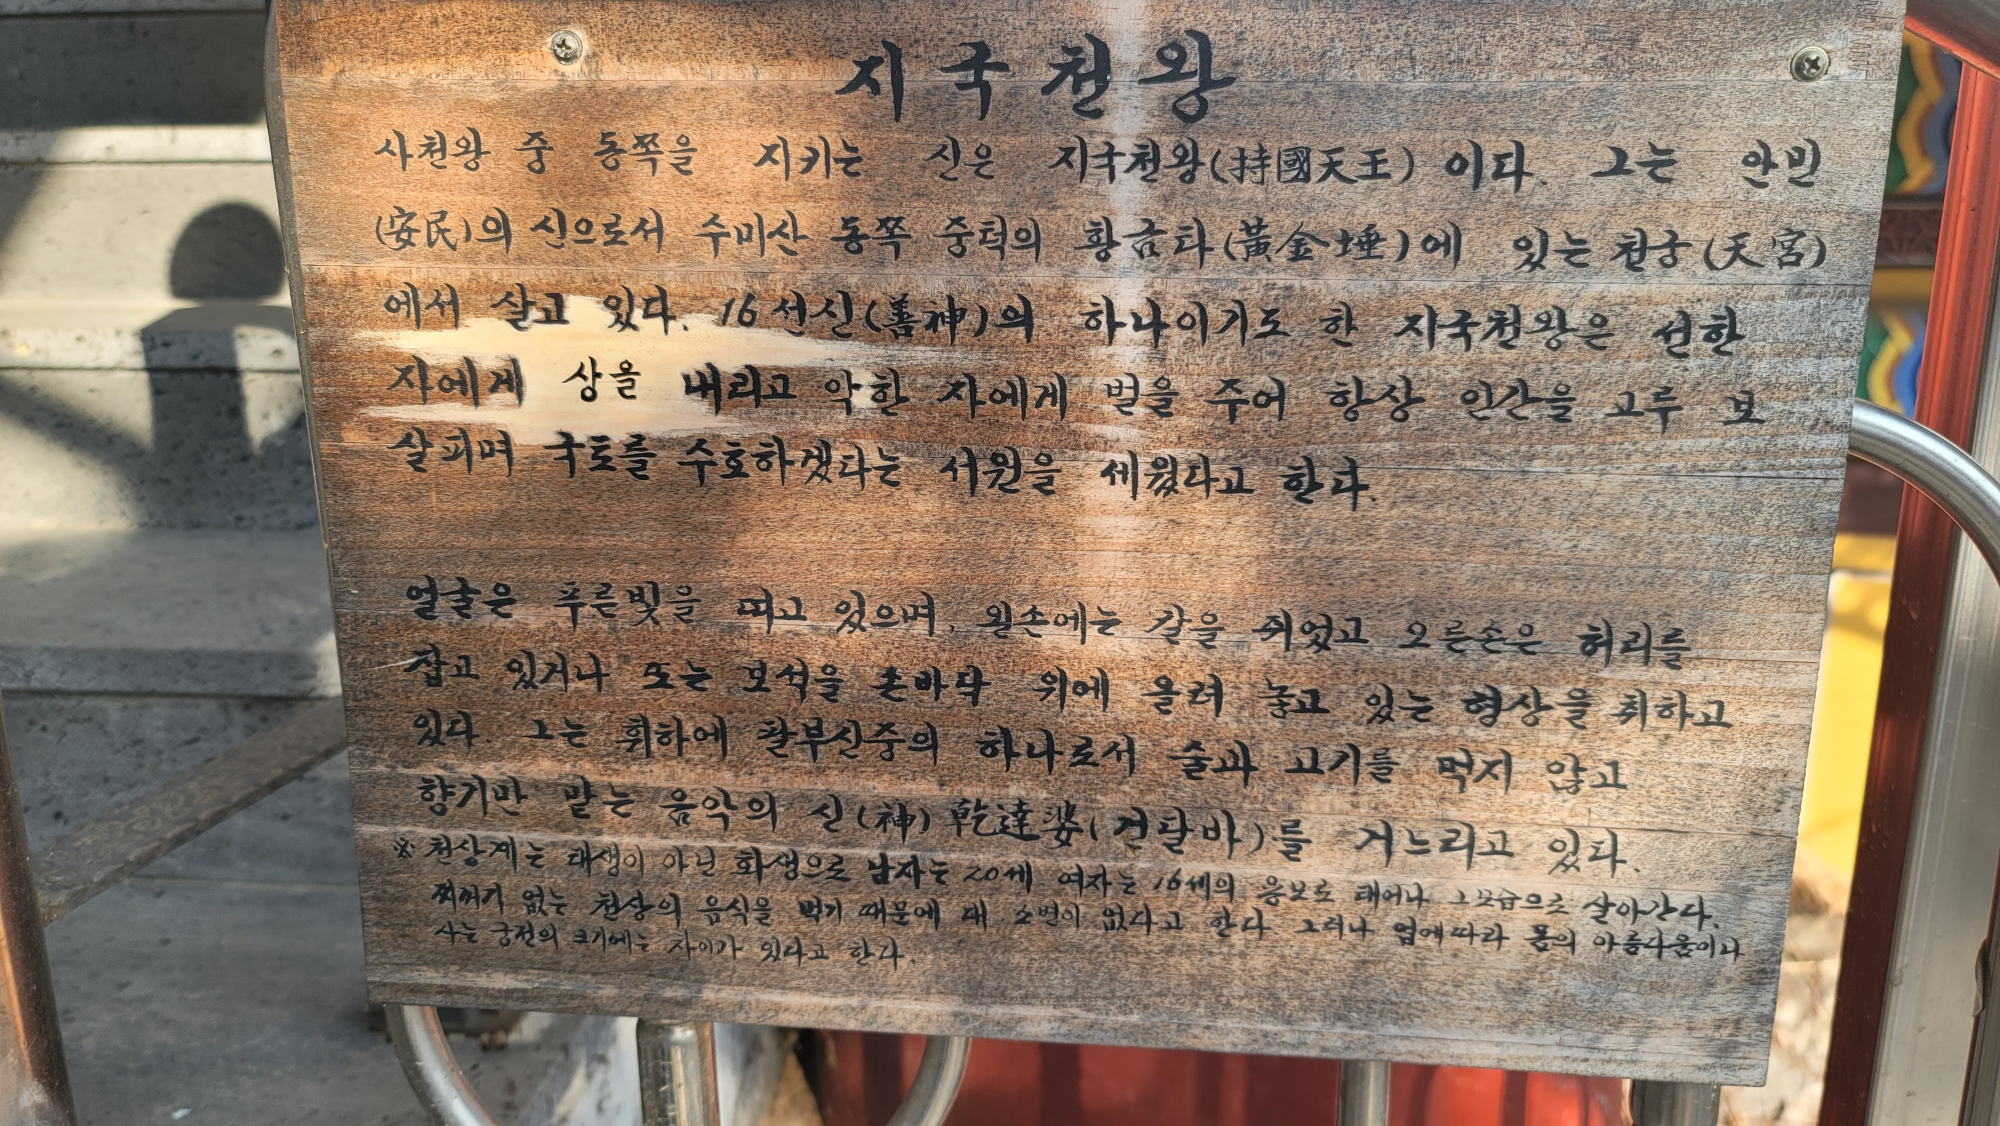 지국천왕
사천왕 중 동쪽을 지키는 신은 지국천왕(持國天王) 이다. 그는 안민
(安民)의 신으로서 수미산 동쪽 중턱의 황금타(黃金埵)에 있는 천궁(天宮)
에서 살고 있다. 16선신(善神)의 하나이기도 한 지국천왕은 선한
자에게 상을 내리고 악한 자에게 벌을 주어 항상 인간을 고루 보
살피며 국토를 수호하겠다는 서원을 세웠다고 한다.
얼굴은 푸른빛을 띠고 있으며, 왼손에는 칼을 쥐었고 오른손은 허리를
잡고 있거나 또는 보석을 손바닥 위에 올려 놓고 있는 형상을 취하고
있다. 그는 휘하에 팔부신중의 하나로서 술과 고기를 먹지 않고
향기만 맡는 음악의 신(神) 乾達婆(건달바)를 거느리고 있다.
※ 천상계는 태생이 아닌 화생으로 남자는 20세 여자는 16세의 응보로 태어나 그 모습으로 살아간다.
찌꺼기 없는 천상의 음식을 먹기 때문에 대.소변이 없다고 한다. 그러나 업에따라 몸의 아름다움이나
사는 궁전의 크기에는 차이가 있다고 한다.